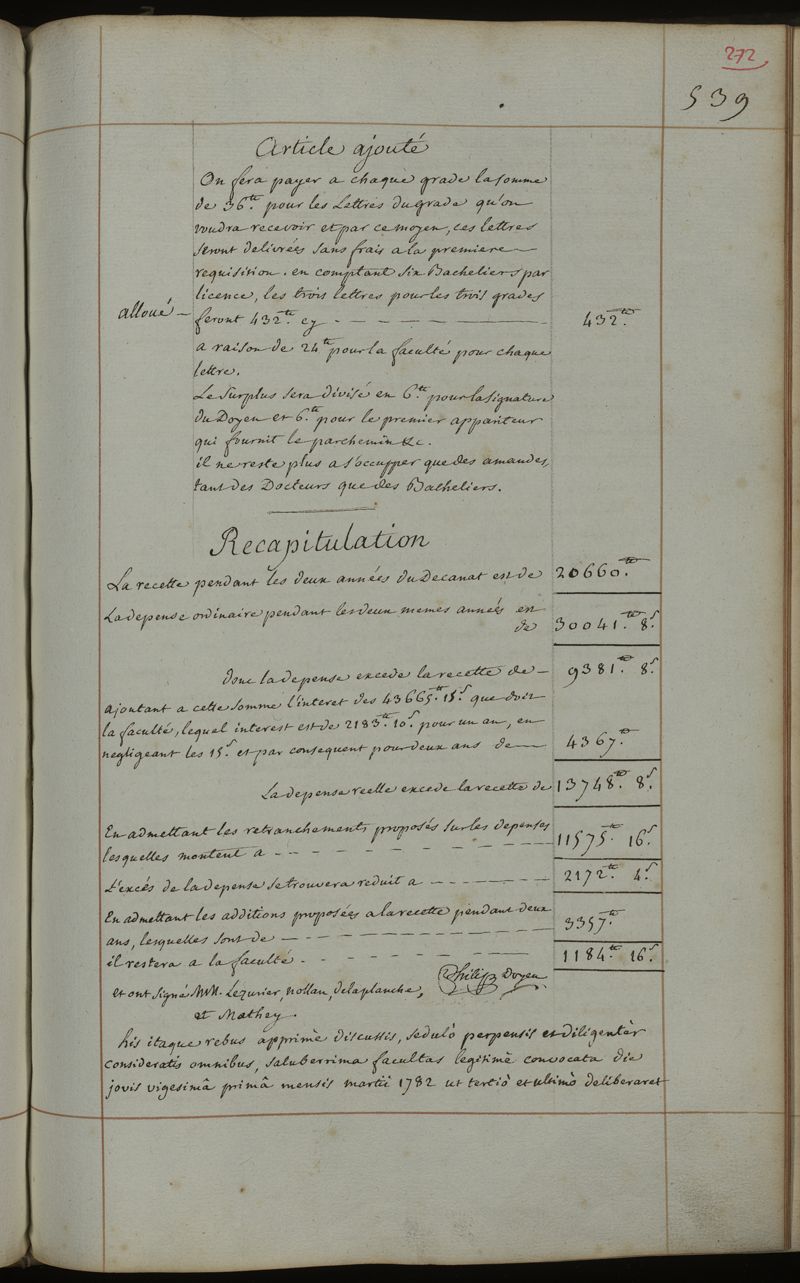 272
539
Article ajouté
On fera payer a chaque grade la somme
de 36.tt pour les Lettres du grade qu'on
voudra recevoir et par ce moyen, ces lettres
seront delivrées sans frais a la premiere
requisition. en comptant six Bacheliers par
licence, les trois lettres pour les trois grades
alloué — feront 432.tt cy - - - - - - 432.tt
a raison de 24.tt pour la faculté pour chaque
lettre.
Le surplus sera divisé en 6.tt pour la signature
du Doyen et 6.tt pour le premier appariteur
qui fournit le parchemin &c.
il ne reste plus a s'occupper que des amandes,
tant des Docteurs que des Bacheliers.
Recapitulation
La recette pendant les deux années du Decanat est de 20660.tt
La depense ordinaire pendant les deux memes années est
de 30041.tt 8.s
donc la depense excede la recette de — 9381.tt 8.s
ajoutant a cette somme l'interet des 43665.tt 15.s que doit
la faculté, lequel interest est de 2183.tt 10.s pour un an, en
negligeant les 15.s et par consequent pour deux ans de — 4367.tt
La depense reelle excede la recette de 13748.tt 8.s
En admettant les retranchements proposés sur les depenses
lesquelles montent a - - - - - - - 11575.tt 16.s
L'excés de la depense se trouvera reduit a - - - - - 2172.tt 4.s
En admettant les additions proposées a la recette pendant deux
ans, lesquelles sont de - - - - - - - 3357.tt
il restera a la faculté - - - - - - 1184.tt 16.s
et ont signé MM. Lezurier, nollan, delaplanche, Philip Doyen
et Mathey.
his itaque rebus apprimè discussis, sedulò perpensis et diligentèr
consideratis omnibus, saluberrima facultas legitimè convocata die
jovis vigesimâ primâ mensis martii 1782 ut tertiò et ultimò deliberaret